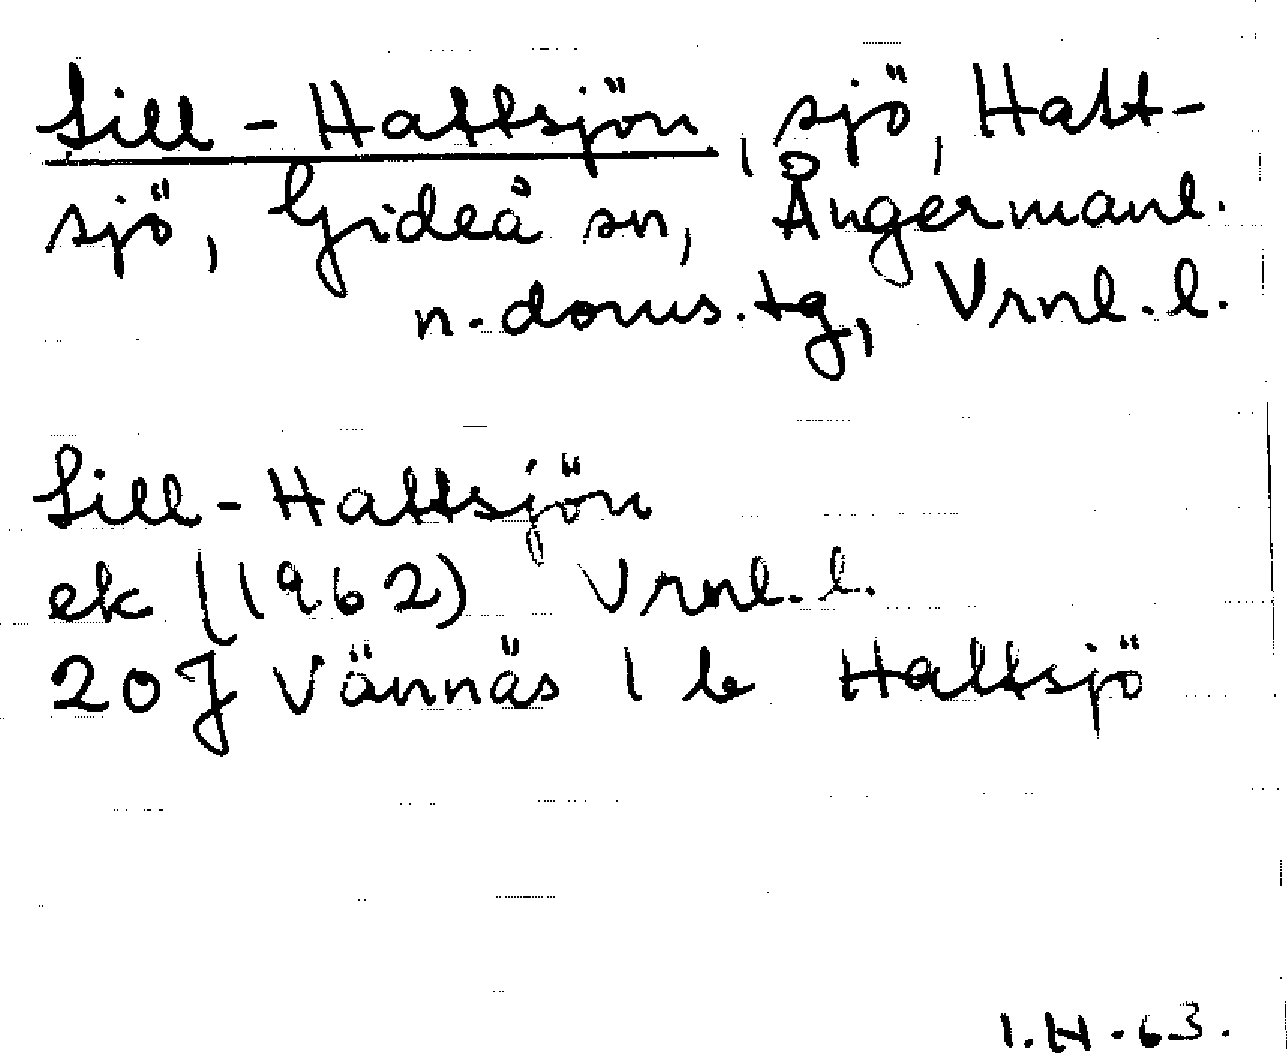 Lill-Hattsjön, sjö, Hatt-
sjö, Gideå sn, Ångermanl.
n. doms. tg, Vrnl. l.
Lill-Hattsjön
ek (1962) Vrnl. l.
20J Vännäs 1 b Hattsjö
I.H-63.